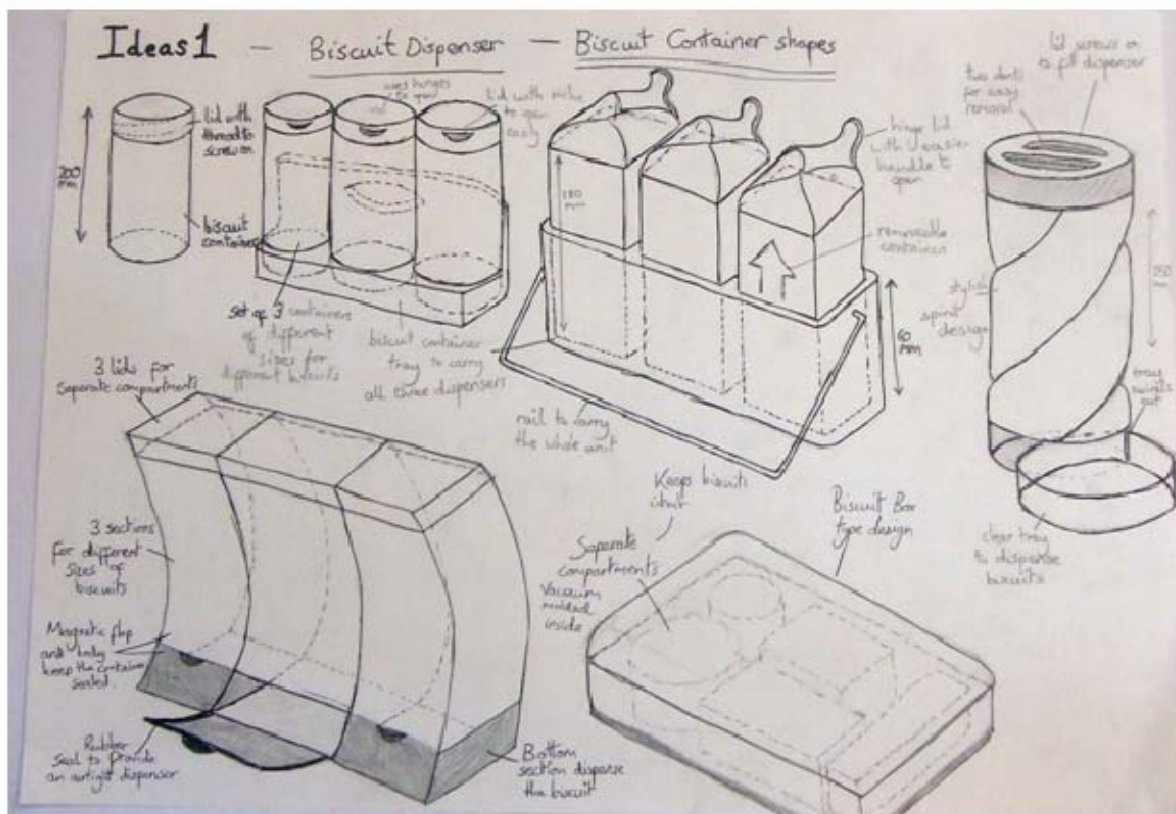 Ideas 1 - Biscuit Dispenser - Biscuit Container shapes
200
mm
lid with
thread to
screw on
biscuit
container
uses hinges
to open
lid with niche
to open
easily
set of 3 containers
of different
sizes for
different biscuits
biscuit container
tray to carry
all three dispensers
180
mm
hinge lid
with easier
handle to
open
removeable
container
60
mm
rail to carry
the whole unit
lid screws on
to fill dispenser
two
for easy
removal
stylish
design
250
mm
tray
swivels
out
clear tray
to dispense
biscuits
3 lids for
separate compartments
3 sections
for different
sizes of
biscuits
Magnetic flap
and body
keep the container
sealed.
Rubber
seal to provide
an airtight dispenser
Bottom
section dispense
the biscuit
Keeps biscuits
intact
Saperate
compartments
vacuum
molded
inside
Biscuit Box
type design